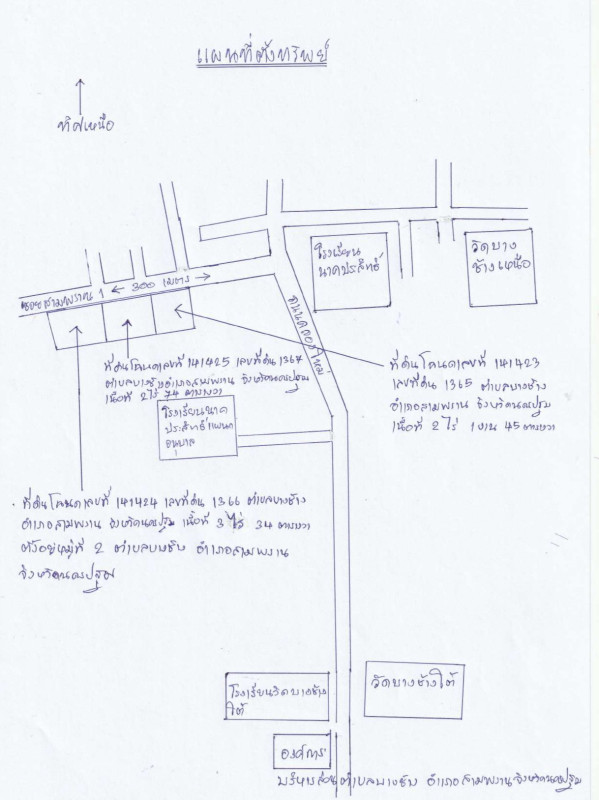 แผนที่ตั้งทรัพย์
ทิศเหนือ
โรงเรียน
นาคประสิทธิ์
วัดบาง
ช้างเหนือ
ซอยสามพราน 1 ← 300 เมตร →
ถนนคลองใหม่
ที่ดินโฉนดเลขที่ 141425 เลขที่ดิน 1367
ตำบลบางช้าง อำเภอสามพราน จังหวัดนครปฐม
เนื้อที่ 2 ไร่ 74 ตารางวา
ที่ดินโฉนดเลขที่ 141423
เลขที่ดิน 1365 ตำบลบางช้าง
อำเภอสามพราน จังหวัดนครปฐม
เนื้อที่ 2 ไร่ 1 งาน 45 ตารางวา
โรงเรียนนาค
ประสิทธิ์แผนก
อนุบาล
ที่ดินโฉนดเลขที่ 141424 เลขที่ดิน 1366 ตำบลบางช้าง
อำเภอสามพราน จังหวัดนครปฐม เนื้อที่ 3 ไร่ 34 ตารางวา
ตั้งอยู่หมู่ที่ 2 ตำบลบางช้าง อำเภอสามพราน
จังหวัดนครปฐม
โรงเรียนวัดบางช้าง
ใต้
วัดบางช้างใต้
องค์การ
บริหารส่วนตำบลบางช้าง อำเภอสามพราน จังหวัดนครปฐม